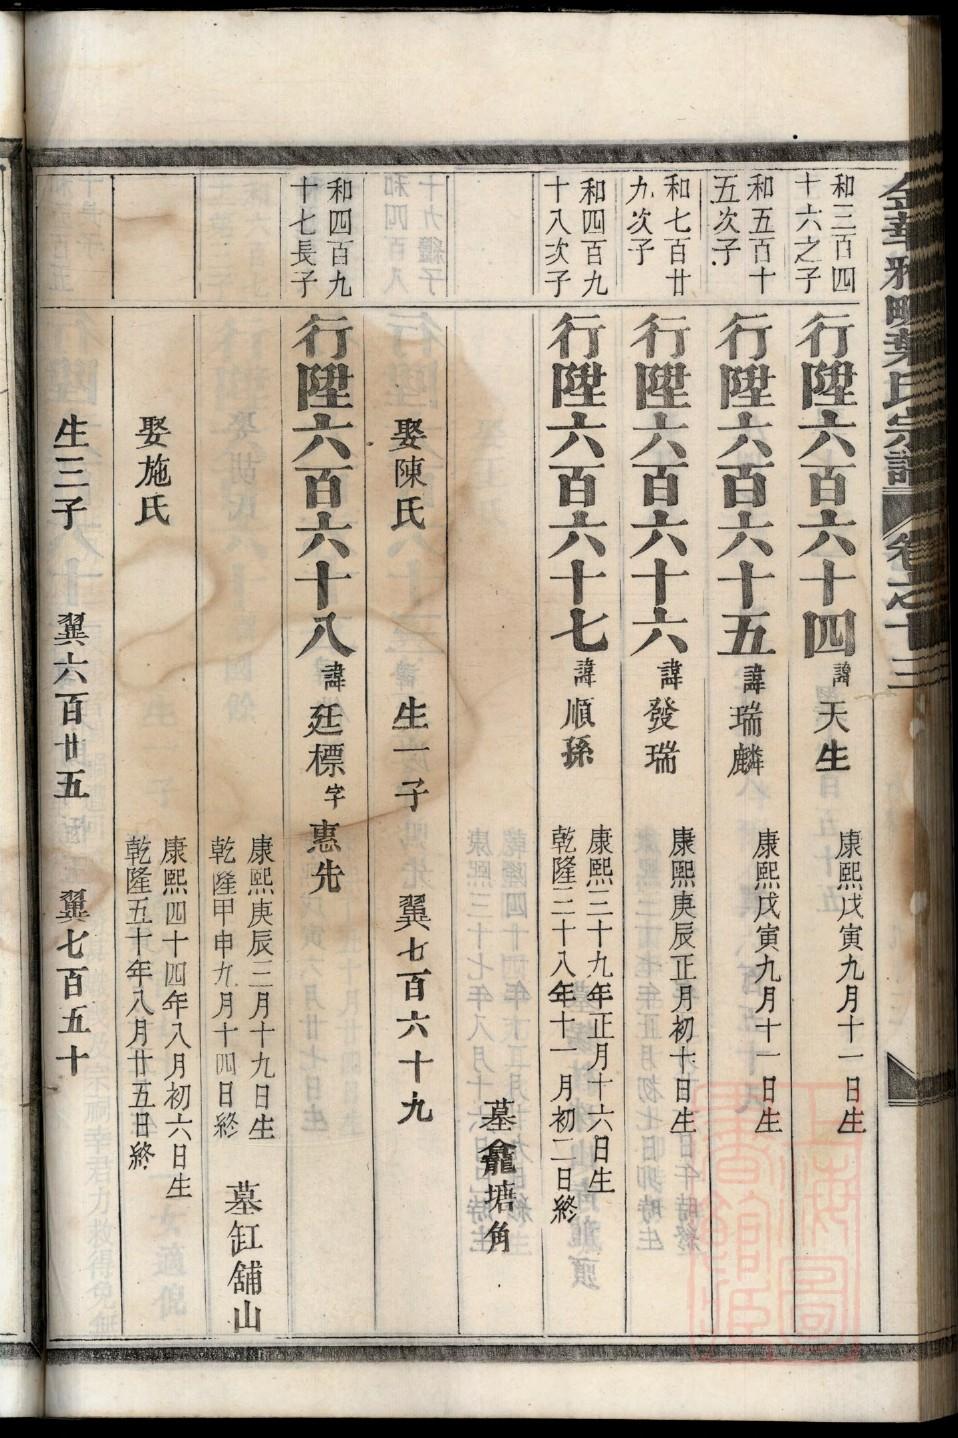 金華雅畈葉氏宗譜 卷之十三
和三百四
十六之子
行陞六百六十四 諱 天生
康熙戊寅九月十一日生
和五百十
五次子
行陞六百六十五 諱 瑞麟
康熙戊寅九月十一日生
和七百廿
九次子
行陞六百六十六 諱 發瑞
康熙庚辰正月初十日生
和四百九
十八次子
行陞六百六十七 諱 順孫
康熙三十九年正月十六日生
乾隆二十八年十一月初二日終
墓龕塘角
娶陳氏 生一子 翼七百六十九
和四百九
十七長子
行陞六百六十八 諱 廷標 字 惠先
康熙庚辰三月十九日生
乾隆甲申九月十四日終
墓缸舖山
娶施氏
康熙四十四年八月初六日生
乾隆五十年八月廿五日終
生三子 翼六百廿五 翼七百五十